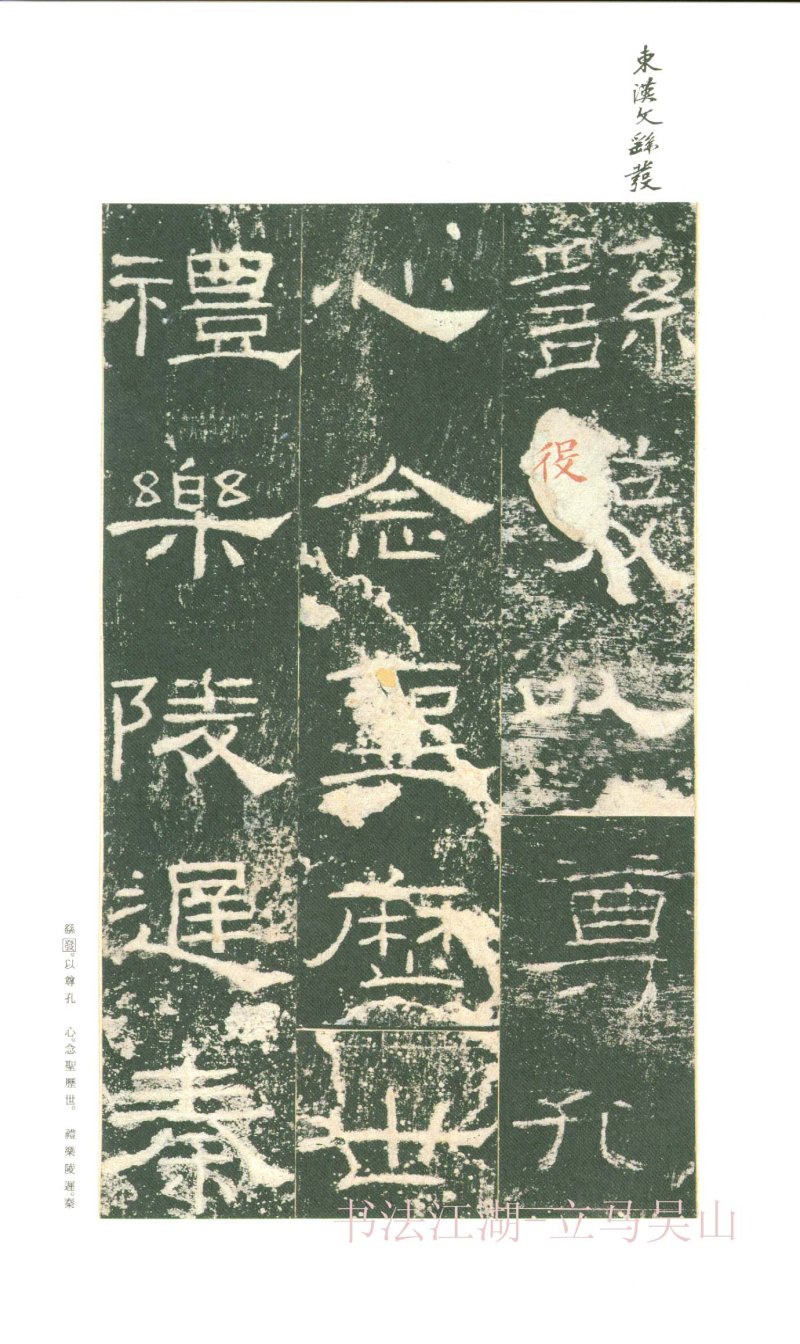 東漢文䌛發
䌛發以尊孔
心念聖歷世
禮樂陵遲秦
役
䌛發。以尊孔 心。念聖歷世。 禮樂陵遲。秦
书法江湖-立马吴山